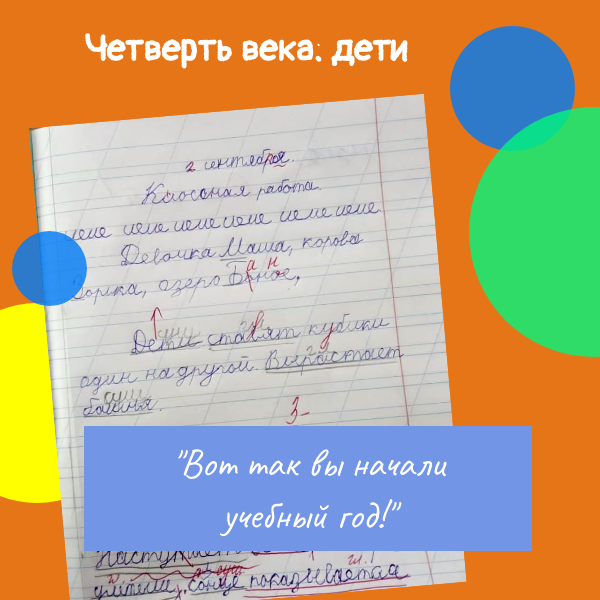 Четверть века: дети
2 сентября.
Классная работа.
Девочка Маша, корова
Зорька, озеро
Дети ставят кубики
один на другой. Вырастает
башня.
3-
"Вот так вы начали
учебный год!"
Наступает
учители, сонце показывается